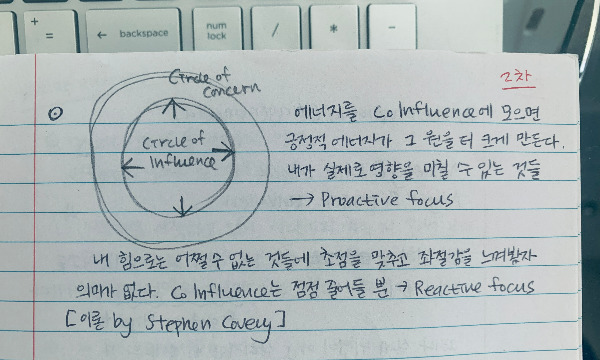 +
=
← backspace
num
lock
/
*
2차
Circle of
concern
Circle of
Influence
에너지를 Co Influence에 모으면
긍정적 에너지가 그 원을 더 크게 만든다.
내가 실제로 영향을 미칠 수 있는 것들
→ Proactive focus
내 힘으로는 어쩔 수 없는 것들에 초점을 맞추고 좌절감을 느껴봤자
의미가 없다. Co Influence는 점점 줄어들 뿐 → Reactive focus
[이론 by Stephen Covey]